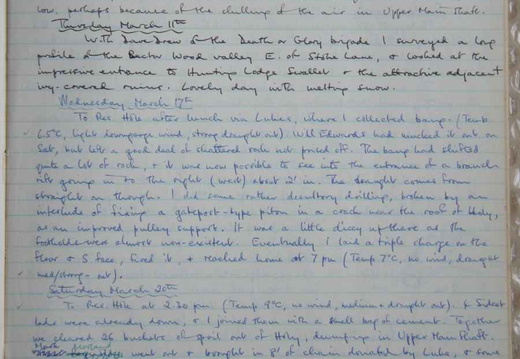 low, perhaps because of the chilling of the air in Upper Main Shaft.
Thursday March 11th
With Dave Drew of the Death or Glory brigade I surveyed a long
profile of the Bector Wood valley E. of Stoke Lane, & looked at the
impressive entrance to Hunting Lodge Swallet & the attractive adjacent
ivy-covered ruins. Lovely day with melting snow.
Wednesday March 17th
To Res. Hole after lunch via Lukes, where I collected bang. (Temp
6.5°C, light downgorge wind, strong draught out). Will Edwards had mucked it out on
Sat, but left a good deal of shattered rock not prised off. The bang had shifted
quite a lot of rock, & it was now possible to see into the entrance of a branch
rift going in to the right (west) about 2' in. The draught comes from
straight on though. I did some rather desultory drilling, broken by an
interlude of fixing a gatepost-type piton in a crack near the roof of
as an improved pulley support. It was a little dicey up there as the
footholds were almost non-existent. Eventually I laid a triple charge on the
floor & S face, fired it, & reached home at 7 pm (Temp 7°C, no wind, draught
med/strong out).
Saturday March 20th
To Res. Hole at 2.30 pm. (Temp 9°C, no wind, medium + draught out). &
lads were already down, & I joined them with a small bag of cement. Together
we cleared 26 buckets of spoil out of dump in Upper Main Shaft.
went out & brought in 8' of chain donated by Luke, & some